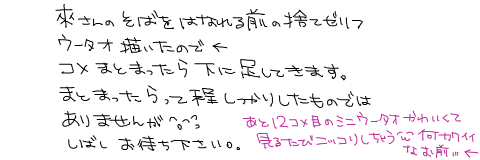 來さんのそばをはなれる前の捨てゼリフ
ウータオ描いたので←
コメまとまったら下に足してきます。
まとまったらって程しっかりしたものでは
ありませんが^^;
しばしお待ち下さい。
あと12コメ目のミニウータオかわいくて
見るたびニッコリしちゃう^^何カワイイ
なお前←